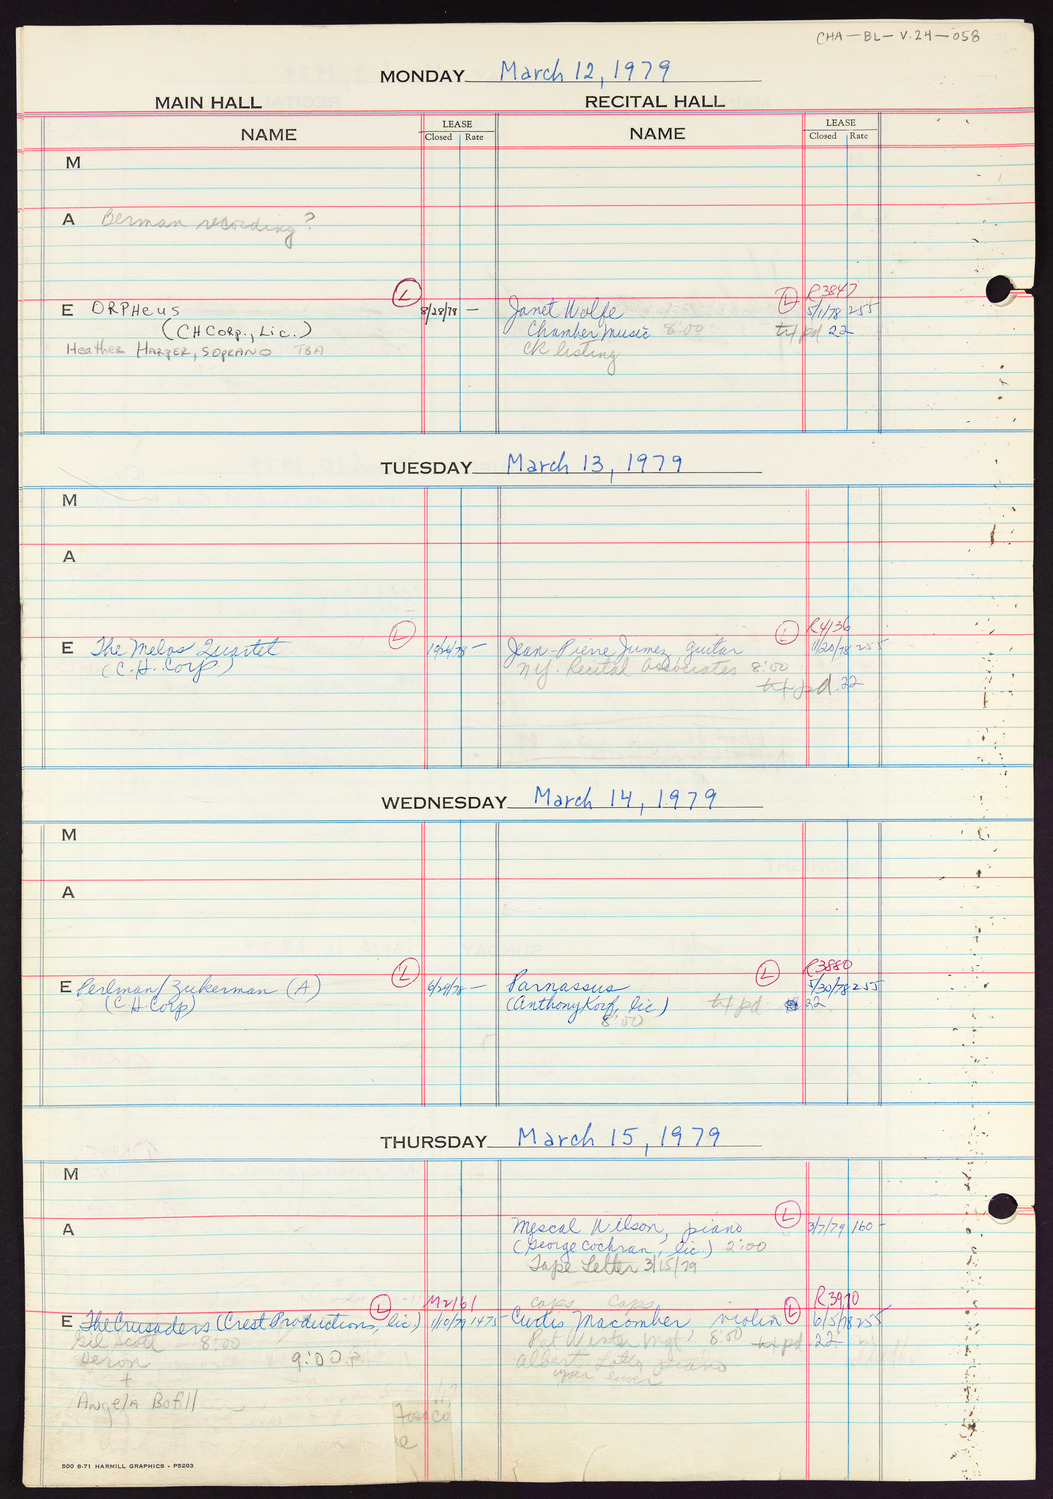 CHA-BL-V.24-058
MONDAY March 12, 1979
MAIN HALL RECITAL HALL
NAME LEASE Closed Rate NAME LEASE Closed Rate
M
A Berman recording?
E ORPHeus L 8/28/78 —
(CH Corp., Lic.)
Heather HARPER, SOPRANO TBA
Janet Wolfe L R3847 5/1/78 255
Chamber Music 8:00 txt pd 22
ck listing
TUESDAY March 13, 1979
M
A
E The Melos Quartet L —
(C.H. Corp)
Jean-Pierre Jumez, guitar L R4136 11/20/78 255
N.Y. Recital Associates 8:00
txt pd. 22
WEDNESDAY March 14, 1979
M
A
E Perlman/Zukerman (A) L 6/29/78 —
(C H Corp)
Parnassus L R3880 5/30/78 255
(Anthony Korf, lic.) txt pd. 22
8:00
THURSDAY March 15, 1979
M
A Mescal Wilson, piano L 3/7/79 160 -
(George Cochran, lic.) 2:00
Tape Letter 3/15/79
caps Caps
E The Crusaders (Crest Productions, lic) L M2161 1/10/79 1475
Gil Scott 8:00
Heron 9:00 P
+
Angela Bofill
Curtis Macomber violin L R3910 6/5/78 255
Pat Winter Mgt 8:00 txt pd 22
Albert Lotto piano
upper lower
500 8-71 HARMILL GRAPHICS - P5203